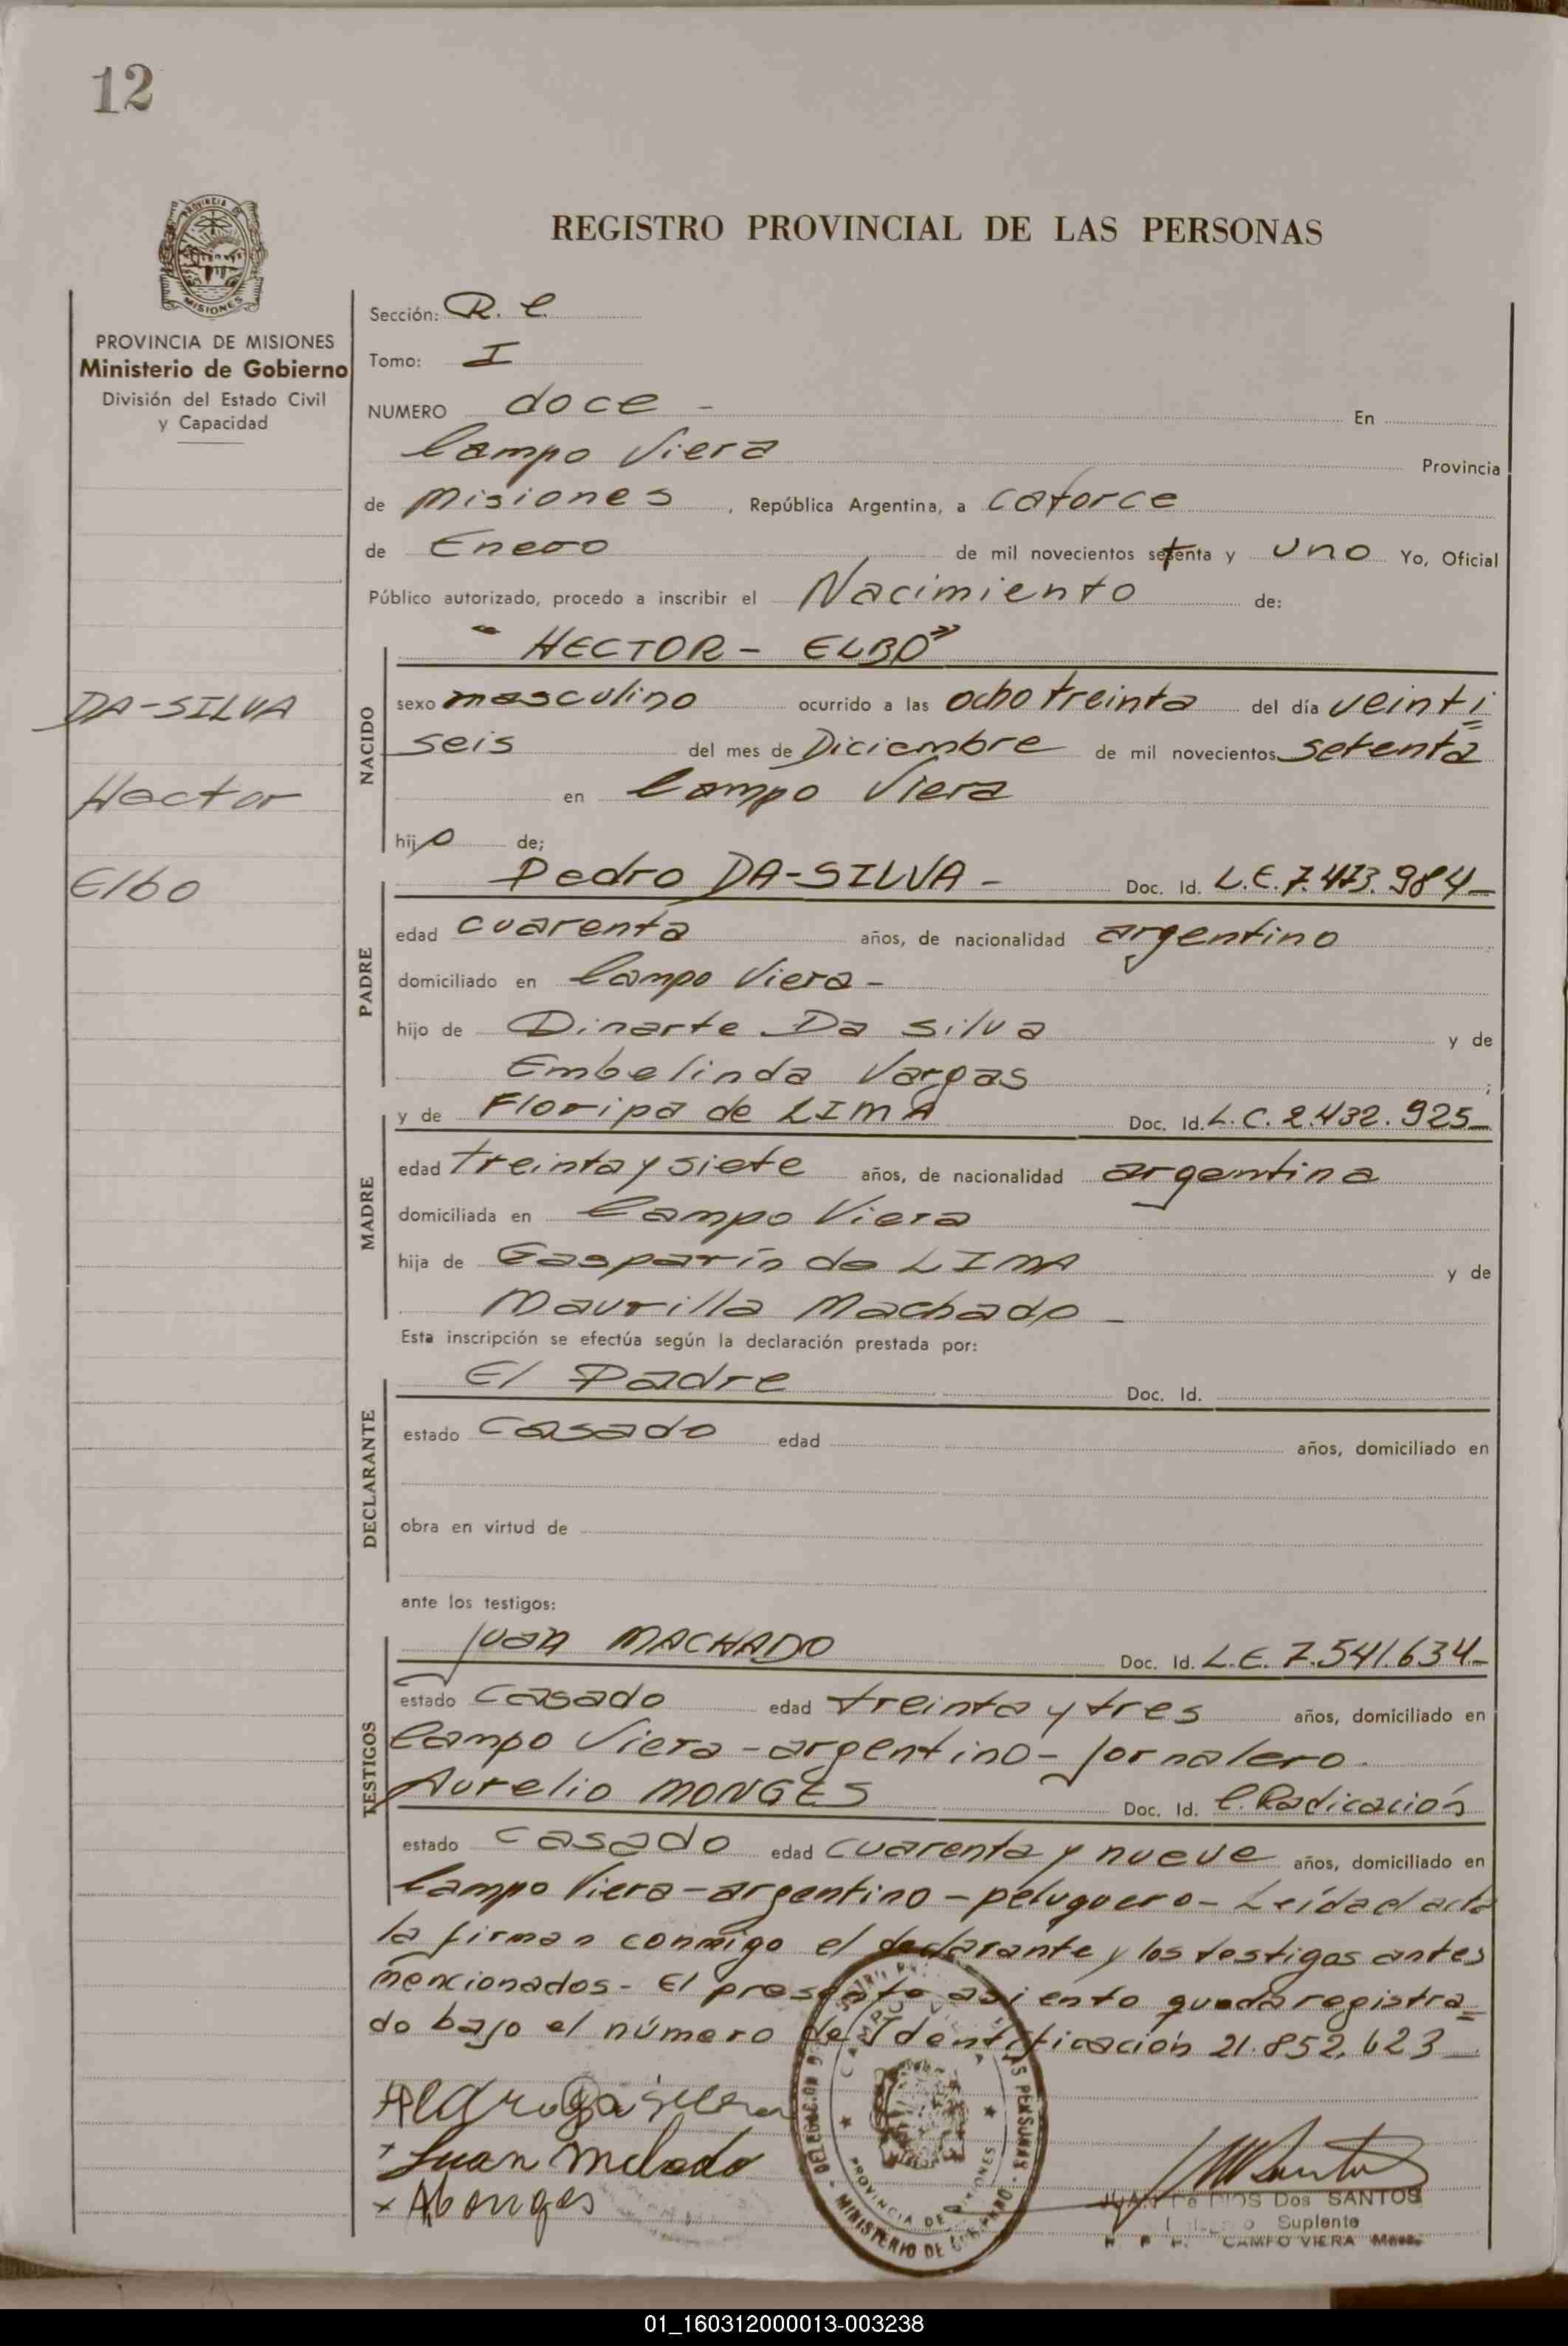 12
REGISTRO PROVINCIAL DE LAS PERSONAS
PROVINCIA DE
MISIONES
PROVINCIA DE MISIONES
Ministerio de Gobierno
División del Estado Civil
y Capacidad
DA-SILVA
Hector
Elbo
Sección: R. C.
Tomo: I
NUMERO doce - En
Campo Viera Provincia
de Misiones, República Argentina, a catorce
de Enero de mil novecientos setenta y uno Yo, Oficial
Público autorizado, procedo a inscribir el Nacimiento de:
"HECTOR - ELBO"
NACIDO
sexo masculino ocurrido a las ocho treinta del día veinti=
seis del mes de Diciembre de mil novecientos setenta
en Campo Viera
hijo de;
Pedro DA-SILVA - Doc. Id. L.E. 7.473.984-
PADRE
edad cuarenta años, de nacionalidad argentino
domiciliado en Campo Viera -
hijo de Dinarte Da Silva y de
Embelinda Vargas;
y de Floripa de LIMA Doc. Id. L.C. 2.432.925-
MADRE
edad treinta y siete años, de nacionalidad argentina
domiciliada en Campo Viera
hija de Gasparín de LIMA y de
Maurilla Machado -
Esta inscripción se efectúa según la declaración prestada por:
El Padre Doc. Id.
DECLARANTE
estado casado edad años, domiciliado en
obra en virtud de
ante los testigos:
Juan MACHADO Doc. Id. L.E. 7.541.634-
TESTIGOS
estado casado edad treinta y tres años, domiciliado en
Campo Viera - argentino - Jornalero.
Aurelio MONGES Doc. Id. C. Radicación
estado casado edad cuarenta y nueve años, domiciliado en
Campo Viera - argentino - peluquero - Leída el acta
la firman conmigo el declarante y los testigos antes
mencionados - El presente asiento queda registra=
do bajo el número de Identificación 21.852.623-
CAMPO VIERA
PROVINCIA DE MISIONES
MINISTERIO DE GOBIERNO
JUAN De DIOS Dos SANTOS
Suplente
CAMPO VIERA
01_160312000013-003238